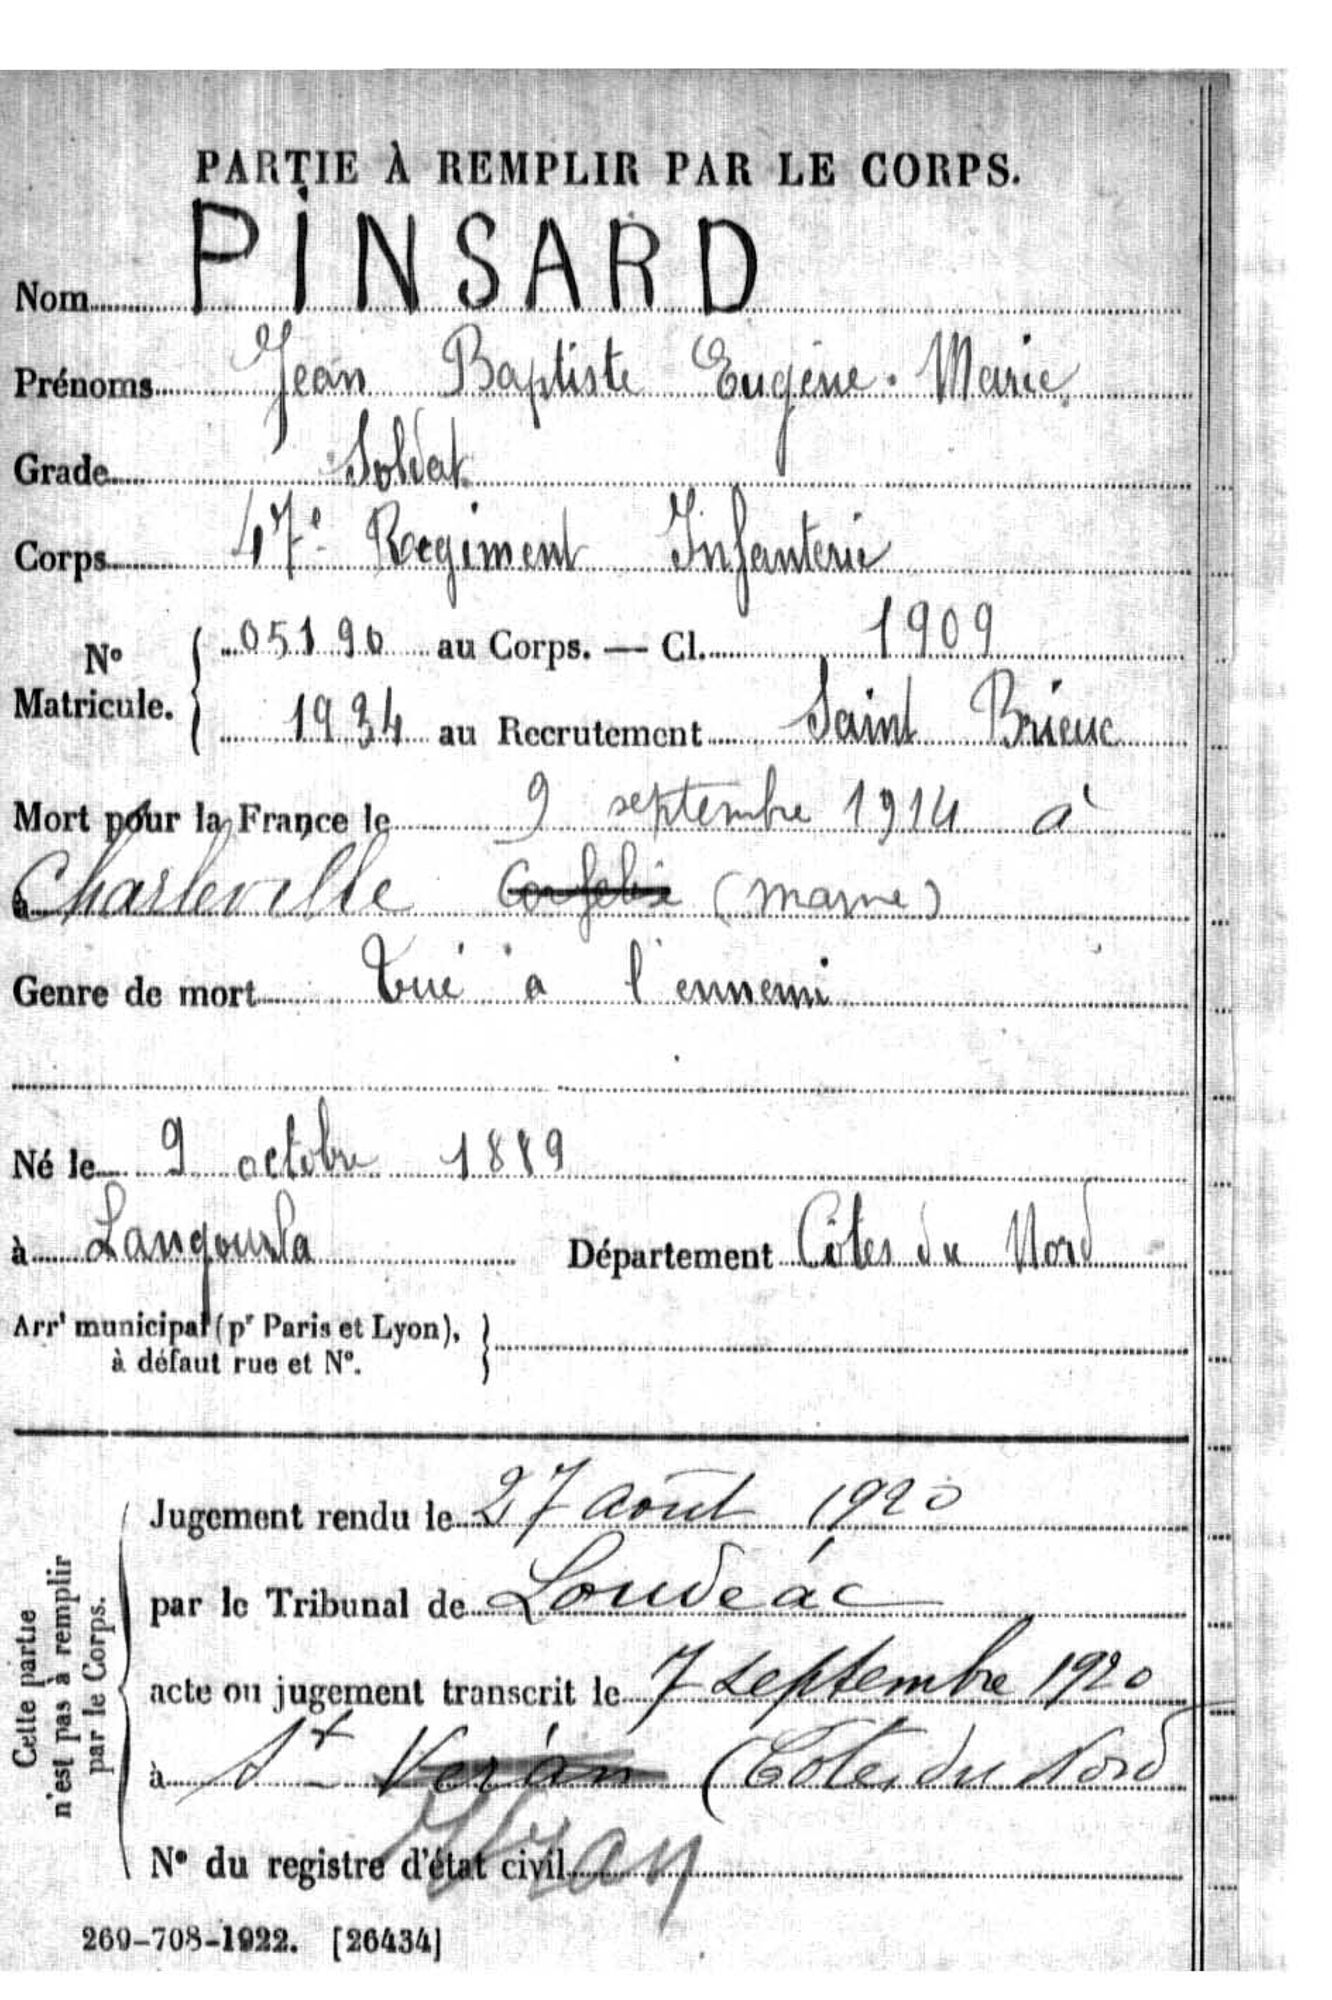 PARTIE À REMPLIR PAR LE CORPS.
Nom PINSARD
Prénoms Jean Baptiste Eugène. Marie
Grade Soldat
Corps 47e Regiment Infanterie
No Matricule. { 05190 au Corps. — Cl. 1909
1934 au Recrutement Saint Brieuc
Mort pour la France le 9 septembre 1914 à
à Charleville Corfelix (Marne)
Genre de mort tué à l'ennemi
Né le 9 octobre 1889
à Langourla Département Côtes du Nord
Arrt municipal (pr Paris et Lyon), }
à défaut rue et No.
Cette partie n'est pas à remplir par le Corps.
Jugement rendu le 27 août 1920
par le Tribunal de Loudéac
acte ou jugement transcrit le 7 septembre 1920
à St Veran (Côtes du Nord
No du registre d'état civil
269-708-1922. [26434]